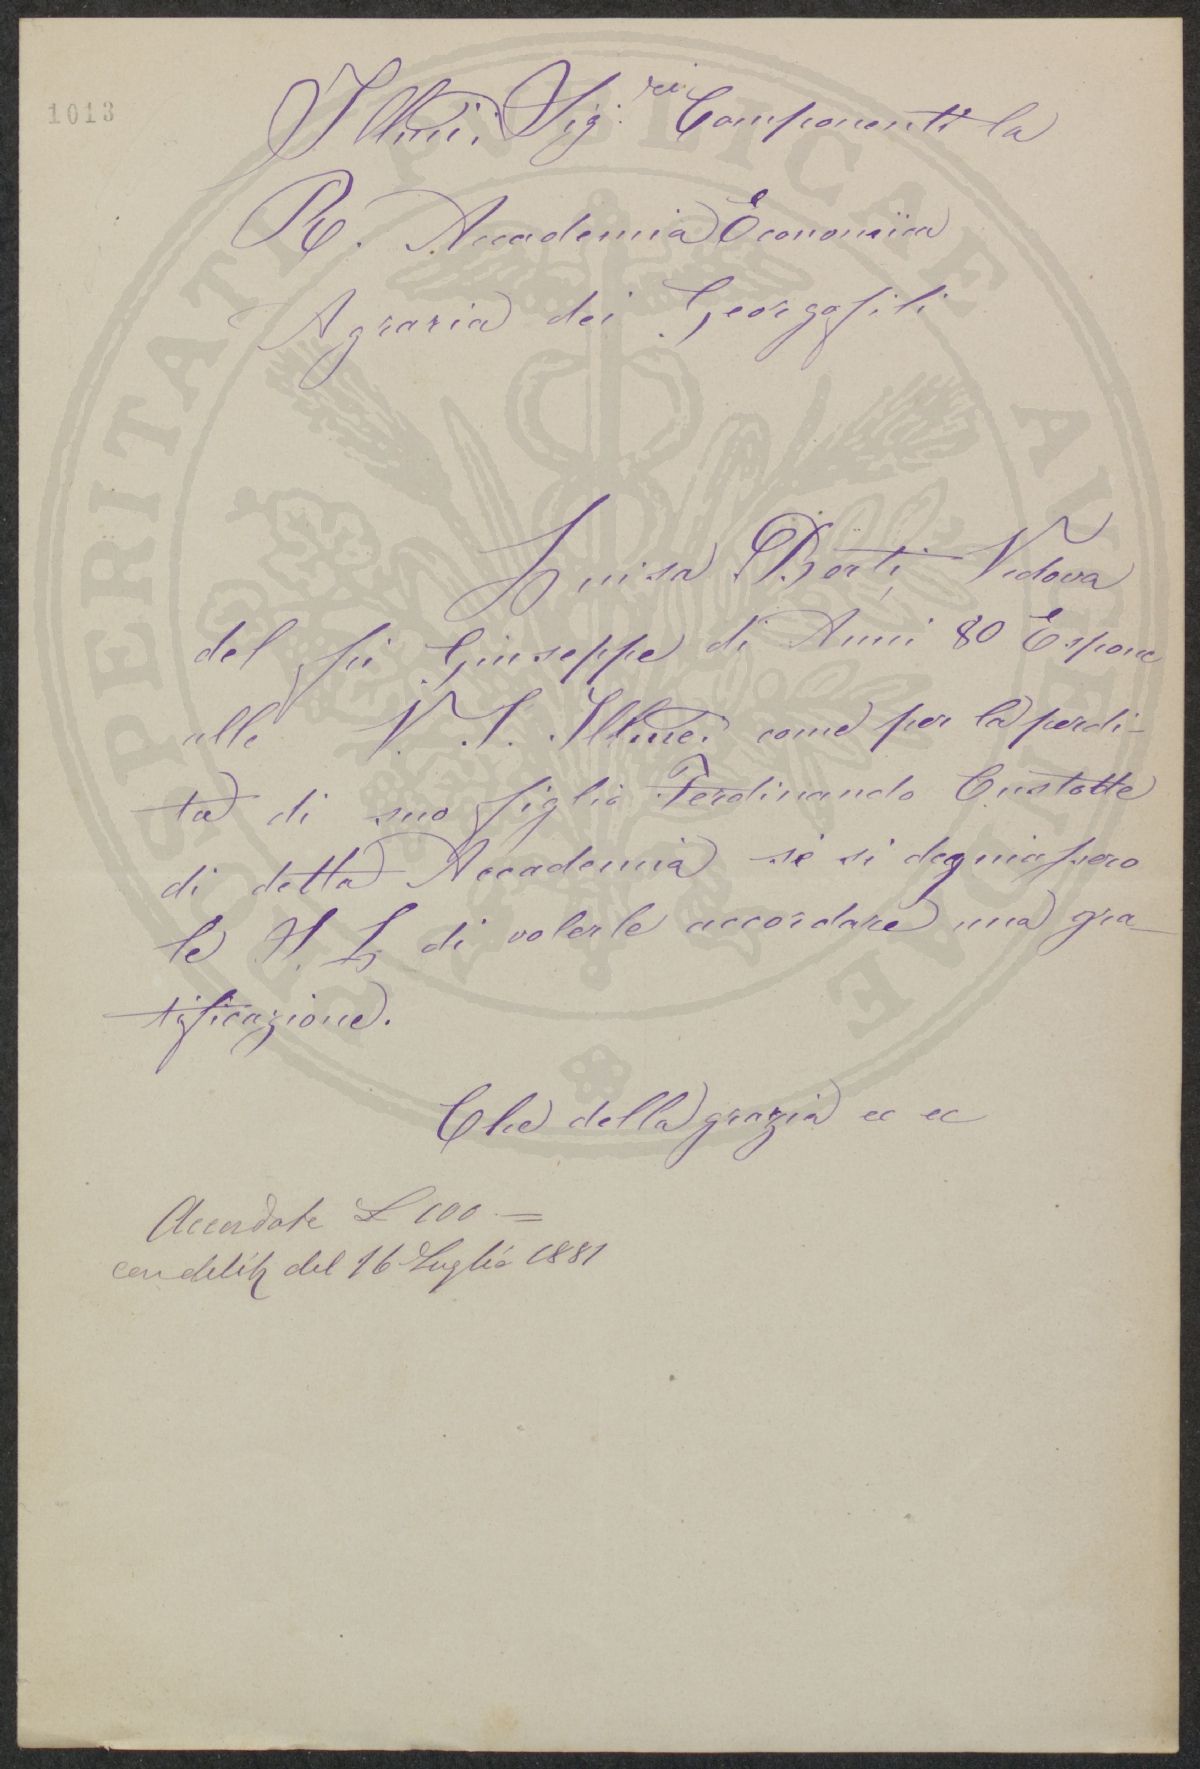 1013
Illmi. Sig.ri Componenti la
R. Accademia Economica
Agraria dei Georgofili
Luisa Berti Vedova
del fu Giuseppe di Anni 80 Espone
alle V. S. Illme. come per la perdi-
ta di suo figlio Ferdinando Custotte
di detta Accademia se si degniassero
le S. L. di volerle accordare una gra-
tificazione.
Che della grazia ec ec
Accordate L 100 =
con delib del 16 Luglio 1881
PROSPERITATI PUBLICAE AUGENDAE